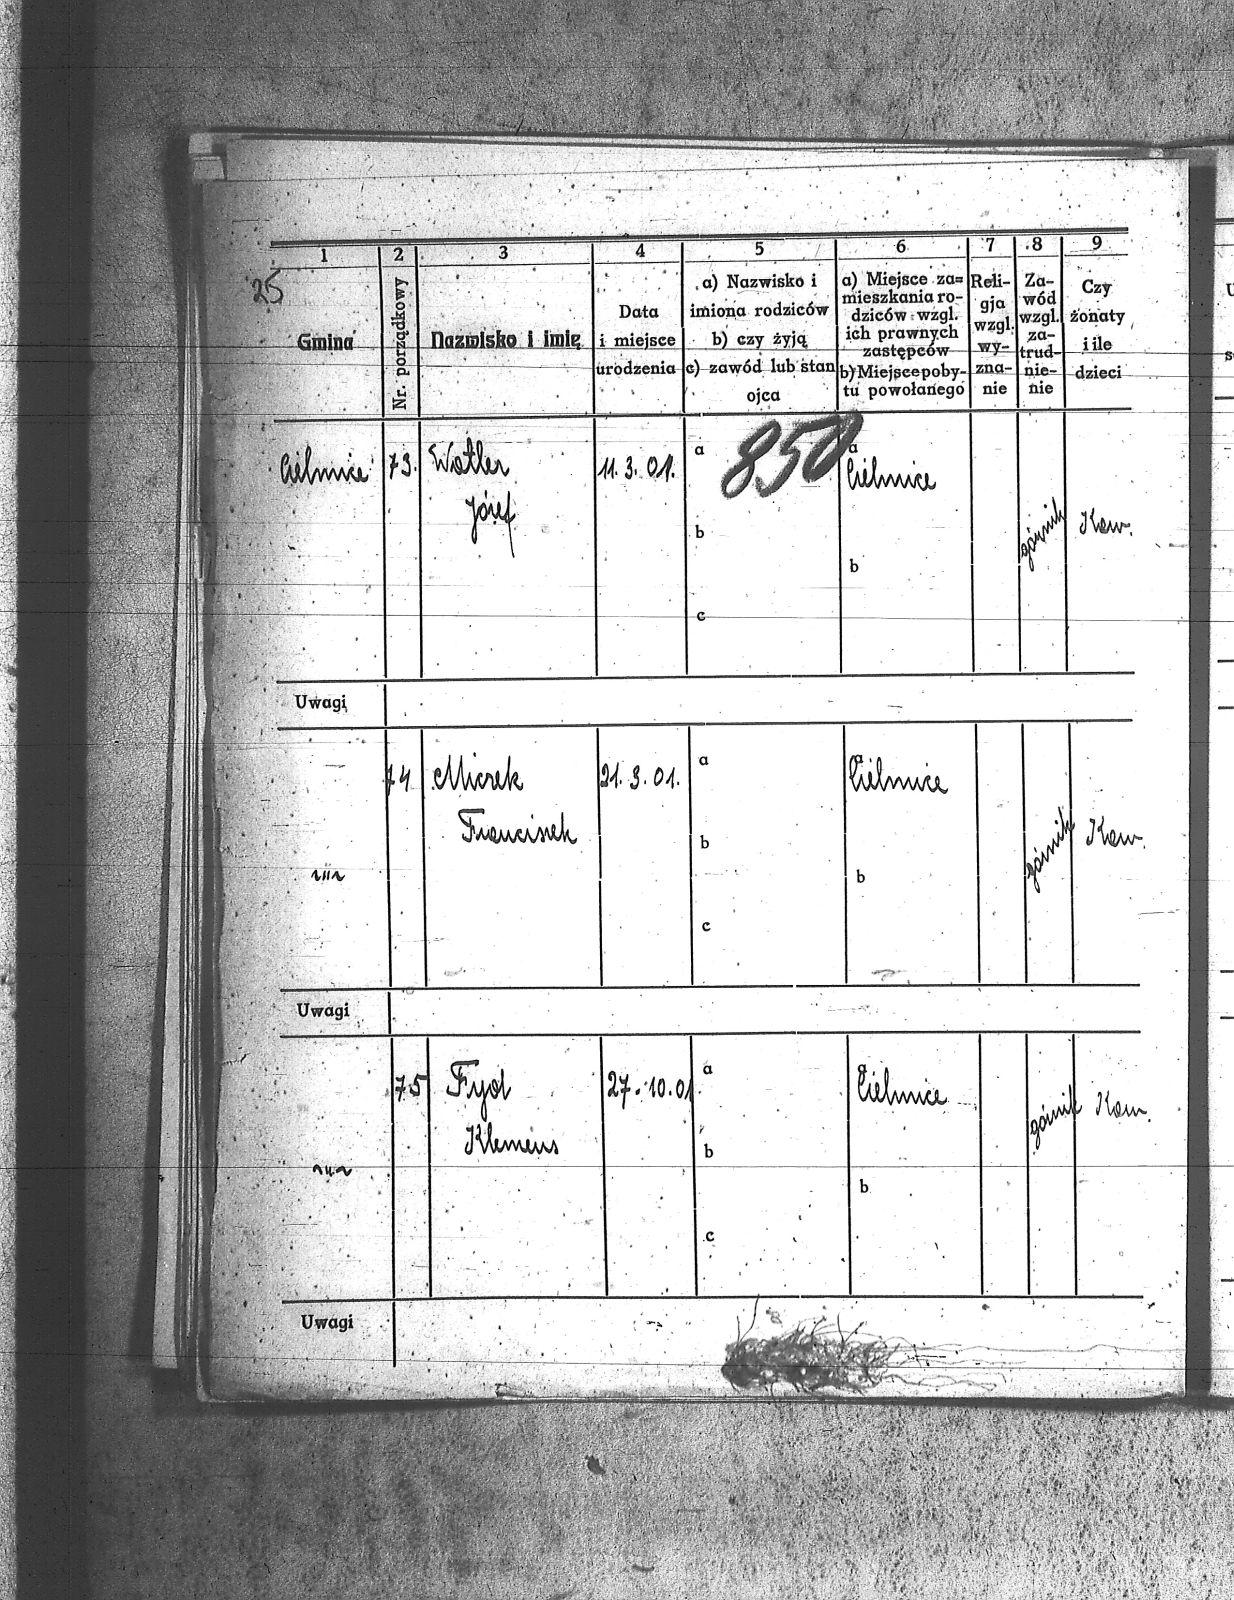 1 2 3 4 5 6 7 8 9
25
Gmina
Nr. porządkowy
Nazwisko i imię
Data
i miejsce
urodzenia
a) Nazwisko i
imiona rodziców
b) czy żyją
c) zawód lub stan
ojca
a) Miejsce za=
mieszkania ro-
dziców wzgl.
ich prawnych
zastępców
b) Miejsce poby-
tu powołanego
Reli-
gja
wzgl.
wy-
zna-
nie
Za-
wód
wzgl.
za-
trud-
nie-
nie
Czy
żonaty
i ile
dzieci
850
Cielmice 73. Watler 11.3.01. a a Cielmice
Józef
b górnik Kaw.
b
c
Uwagi
74 Mierek 21.3.01. a a Cielmice
Franciszek
b górnik Kaw.
-"- b
c
Uwagi
75 Fyol 27.10.01 a a Cielmice
Klemens
b górnik Kaw.
-"- b
c
Uwagi